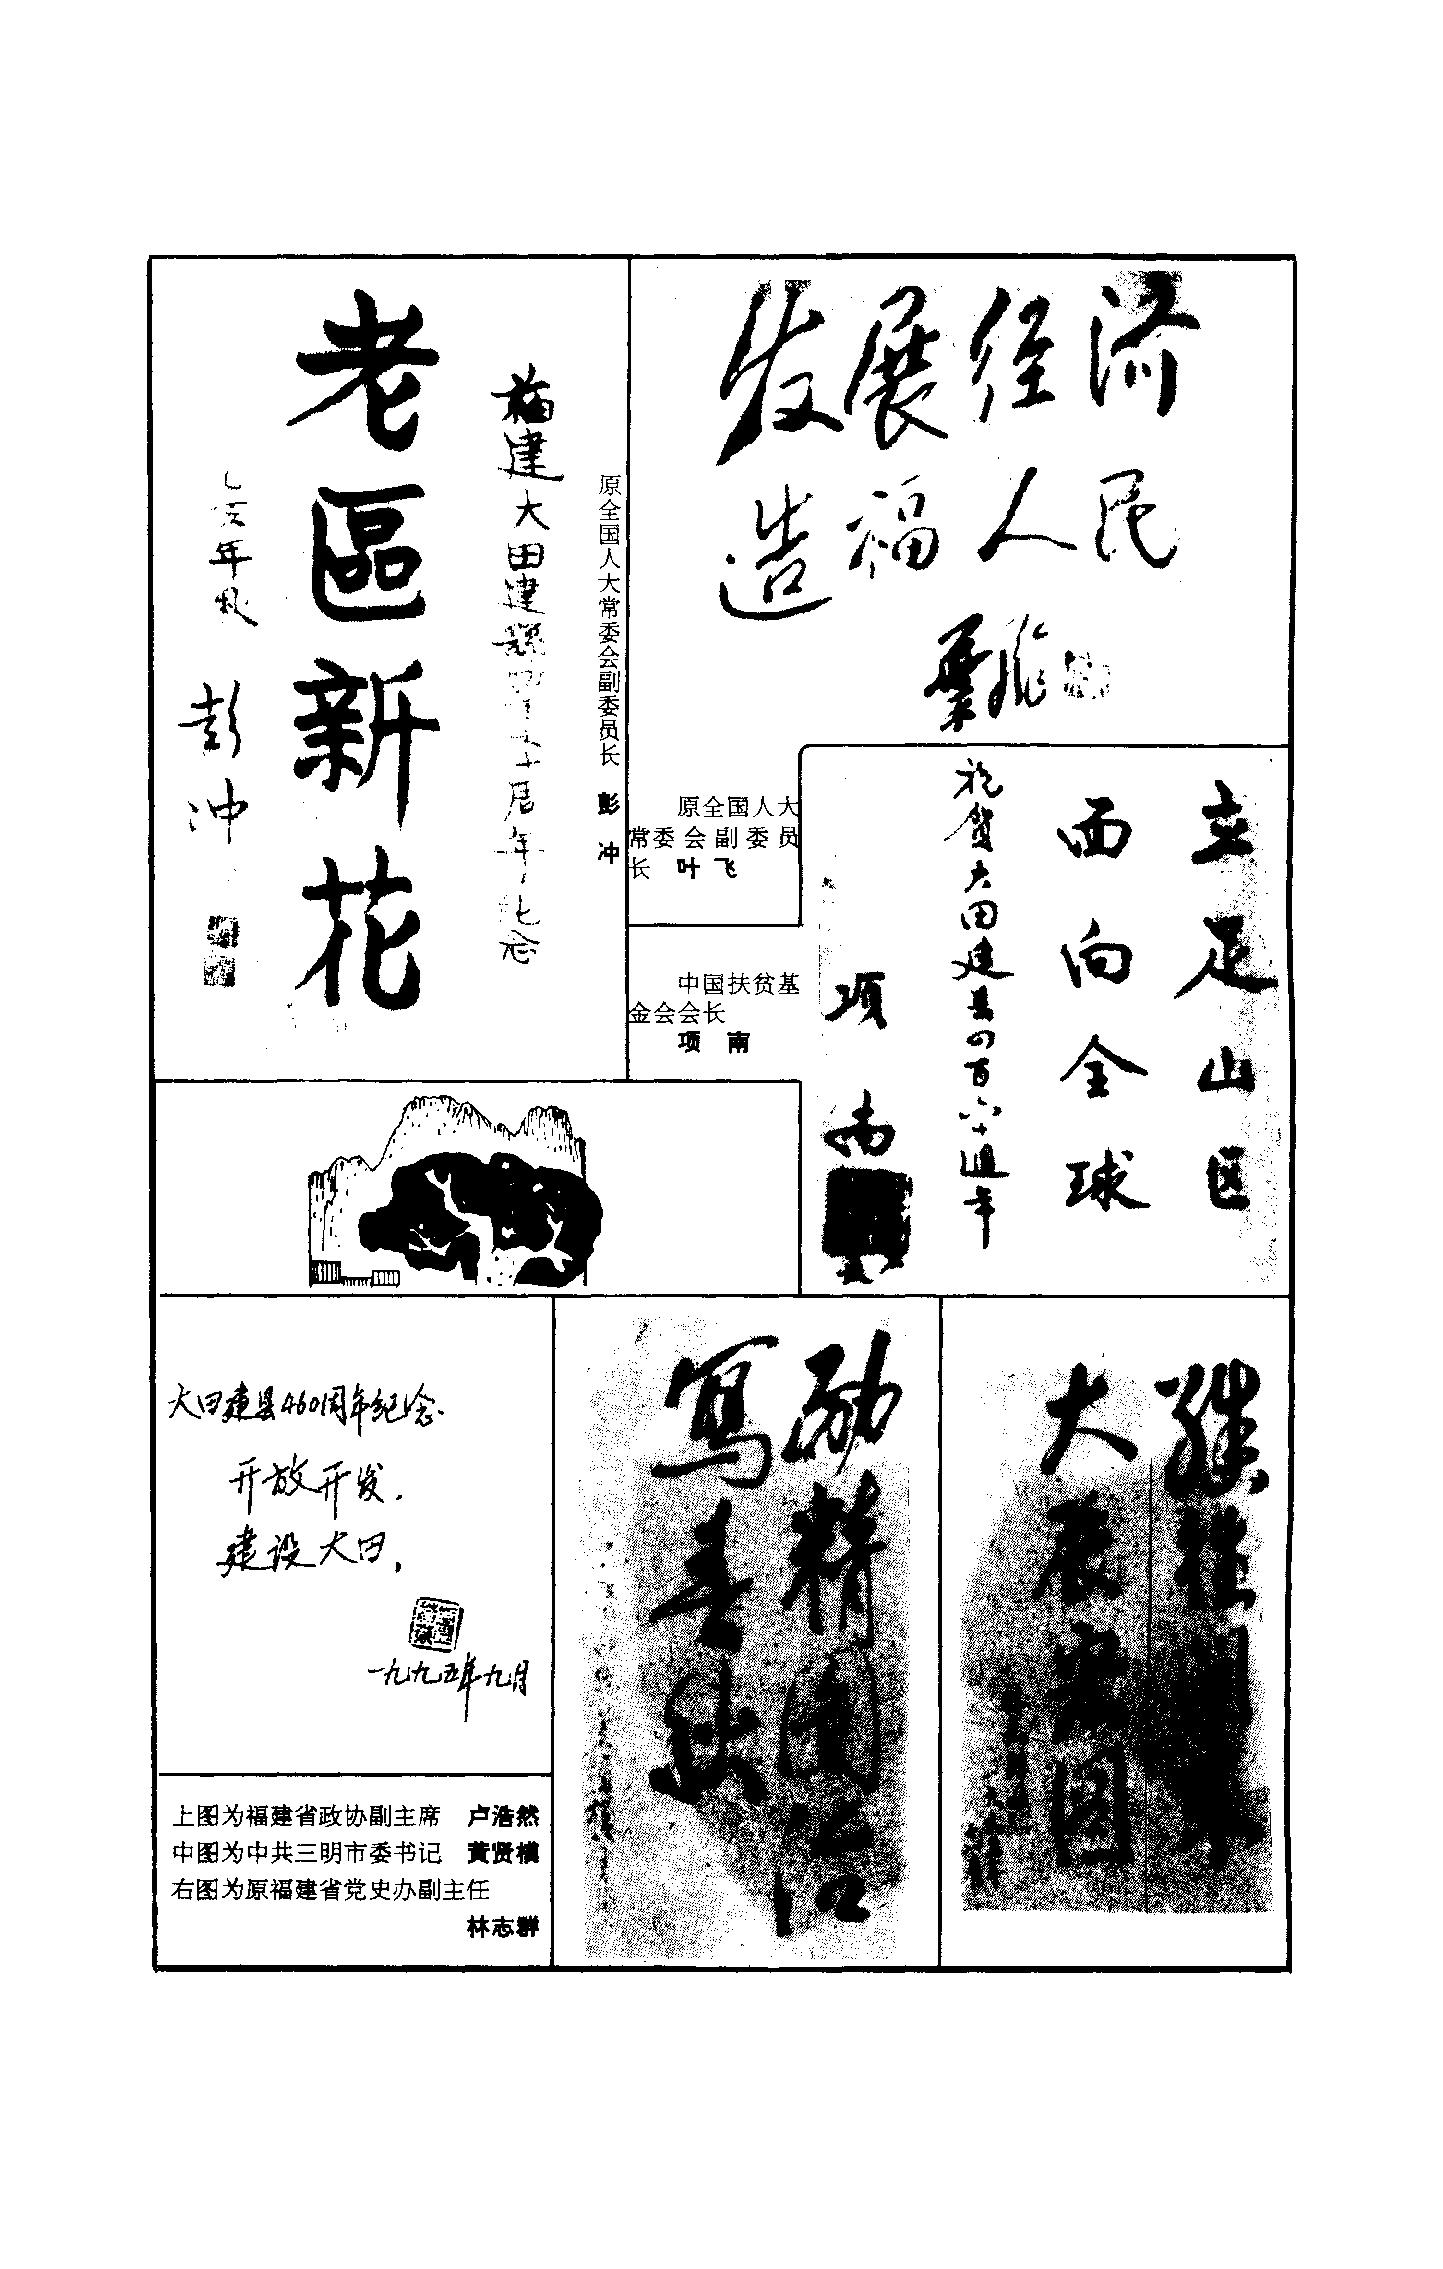 福建大田建縣四百六十周年纪念
老區新花
乙亥年秋
彭冲
原全国人大常委会副委员长 彭冲
发展经济
造福人民
叶飞
原全国人大
常委会副委员
长 叶飞
立足山区
面向全球
祝贺大田建县四百六十周年
项南
中国扶贫基
金会会长
项南
大田建县460周年纪念.
开放开发.
建设大田.
一九九五年九月
励精图治
寫春秋
继往開来
大展宏图
上图为福建省政协副主席 卢浩然
中图为中共三明市委书记 黄贤模
右图为原福建省党史办副主任
林志群